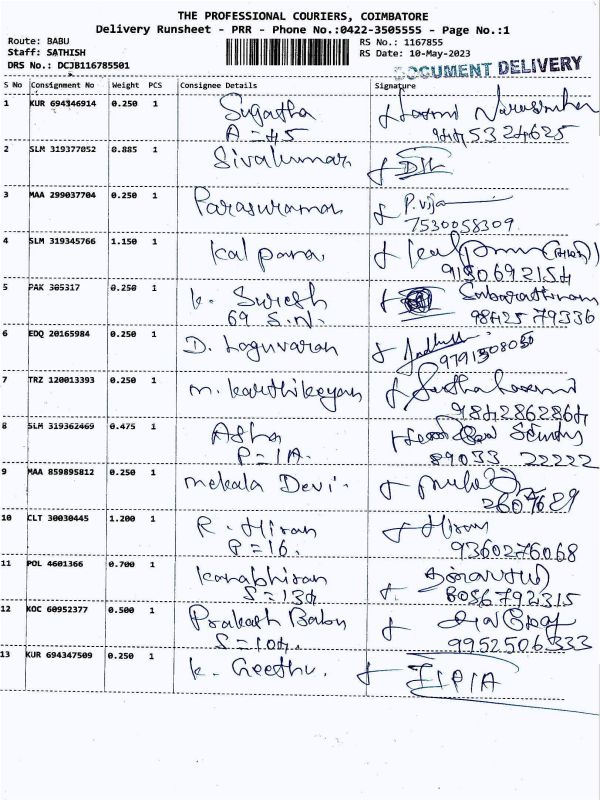 THE PROFESSIONAL COURIERS, COIMBATORE
Delivery Runsheet - PRR - Phone No.:0422-3505555 - Page No.:1
Route: BABU RS No.: 1167855
Staff: SATHISH RS Date: 10-May-2023
DRS No.: DCJB116785501 DOCUMENT DELIVERY
S No Consignment No Weight PCS Consignee Details Signature
1 KUR 694346914 0.250 1 Sugatha
A = 45 9445324625
2 SLM 319377052 0.885 1 Sivakumar
3 MAA 299037704 0.250 1 Parasuraman P. Vija
7530058309
4 SLM 319345766 1.150 1 Kalpana
9150692154
5 PAK 305317 0.250 1 K. Suresh Sabarathinam
69 S.N. 98425 79336
6 EDQ 20165984 0.250 1 D. Loguvaran
9791508050
7 TRZ 120013393 0.250 1 M. Karthikeyan
9842862864
8 SLM 319362469 0.475 1 Asha
P = 1A. 89033 22222
9 MAA 859895812 0.250 1 Mekala Devi.
2607689
10 CLT 30030445 1.200 1 R. Hiran Hiran
P = 16. 9360276068
11 POL 4601366 0.700 1 Kanabhiran
S = 134 8056792315
12 KOC 60952377 0.500 1 Prakash Babu
S = 104. 9952506333
13 KUR 694347509 0.250 1 K. Geethu.